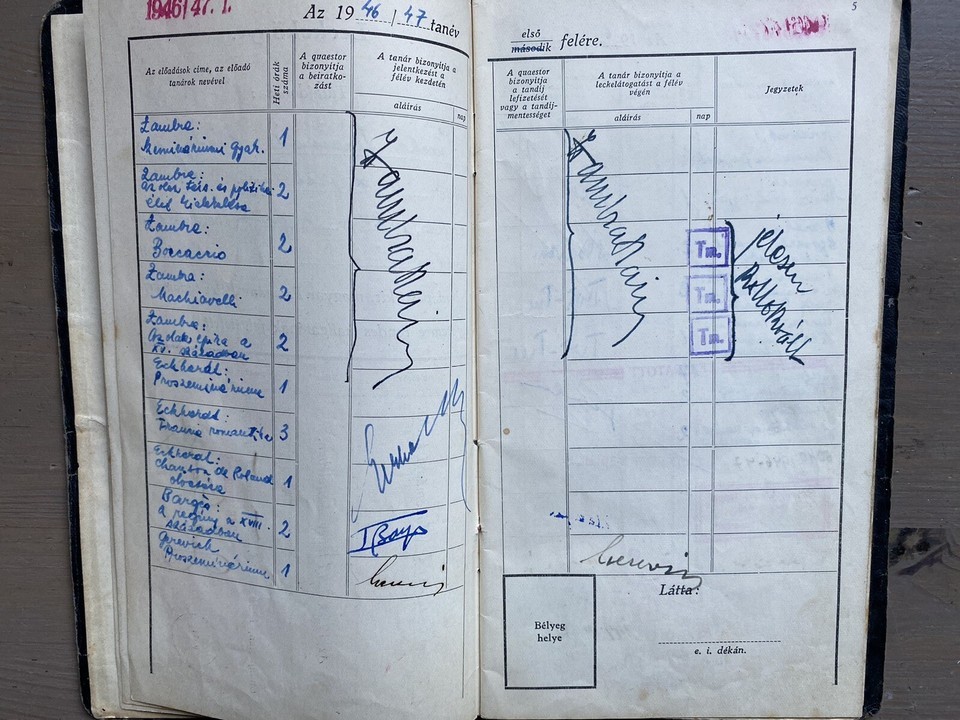 1946/47. I.
Az 1946/47 tanév
Az előadások címe, az előadó
tanárok nevével
Heti órák
száma
A quaestor
bizonyítja
a beiratko-
zást
A tanár bizonyítja a
jelentkezést a
félév kezdetén
aláírás
nap
Zambra:
Szemináriumi gyak.
1
Zambra:
az olasz
2
Zambra:
Boccaccio
2
Zambra:
Machiavelli
2
Zambra:
Az olasz epika a
XV. században
2
Eckhardt:
Proszeminárium
1
Eckhardt:
Francia romantika
3
Eckhardt:
Chanson de Roland
olvasása
1
a regény a XVIII.
században
2
Gerevich
Proszeminárium
1
Zambra Alajos
5
első
második felére.
A quaestor
bizonyítja
a tandíj
lefizetését
vagy a tandíj-
mentességet
A tanár bizonyítja a
leckelátogatást a félév
végén
aláírás
nap
Jegyzetek
Zambra Alajos
Tm.
Tm.
Tm.
jelesen
kollokvált
Gerevich
Bélyeg
helye
Látta:
e. i. dékán.